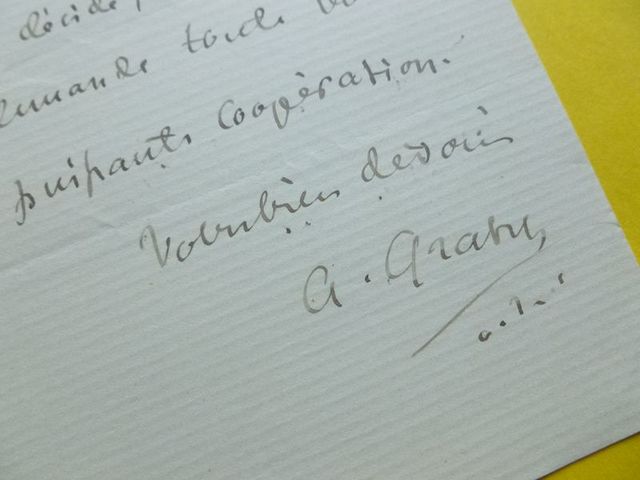 décidé,
demande toute
puissante coopération.
Votre bien dévoué
A. Gratry